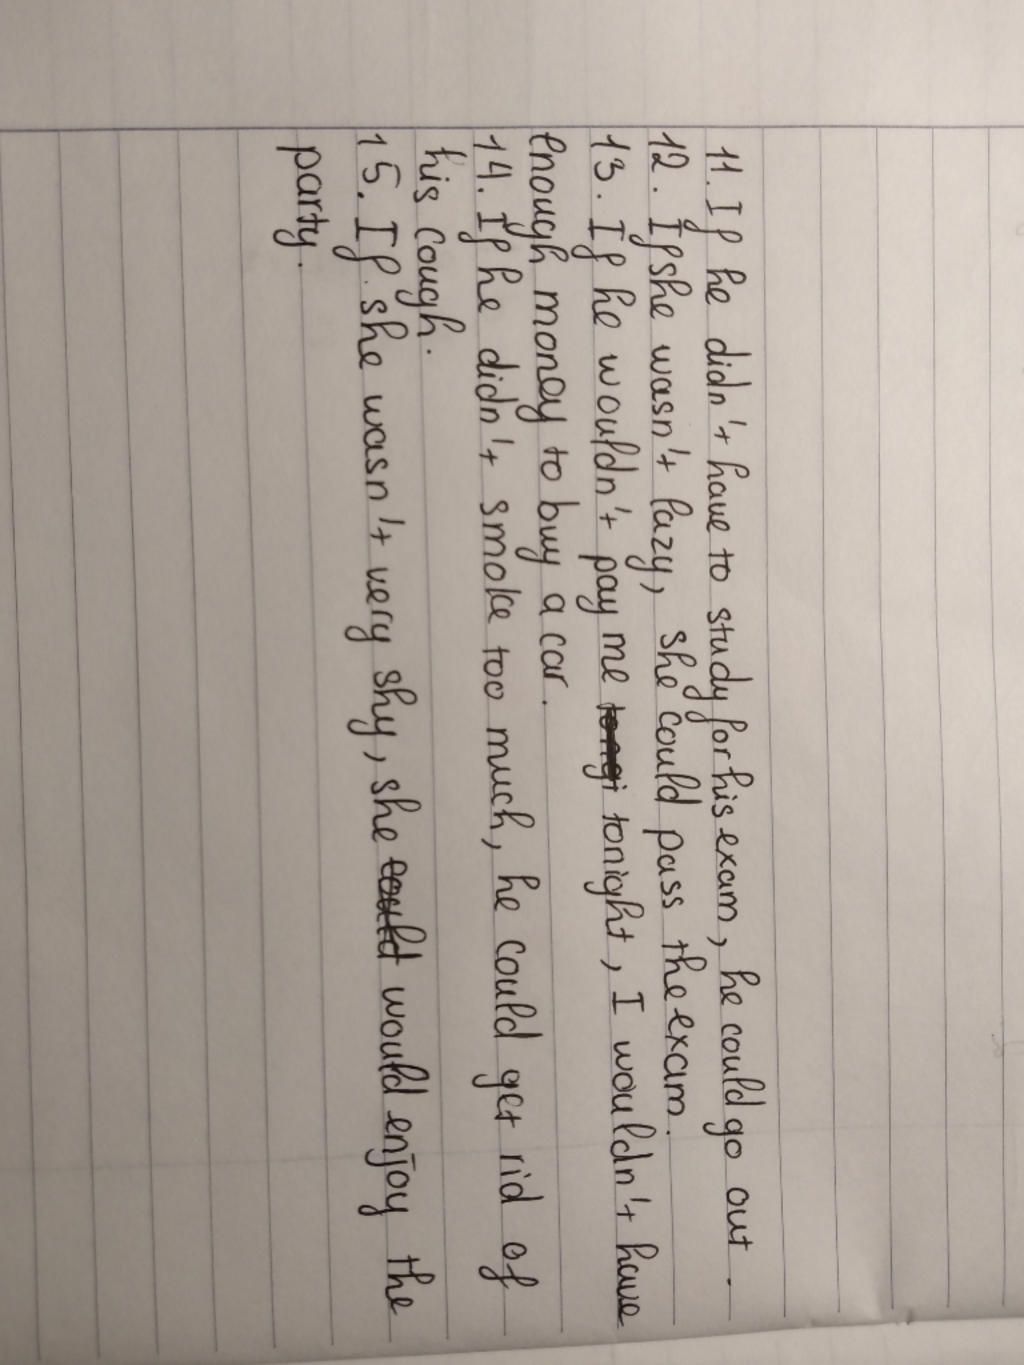 11. If he didn't have to study for his exam, he could go out.
12. If she wasn't lazy, she could pass the exam.
13. If he wouldn't pay me tonight, I wouldn't have
enough money to buy a car.
14. If he didn't smoke too much, he could get rid of
his cough.
15. If she wasn't very shy, she could would enjoy the
party.